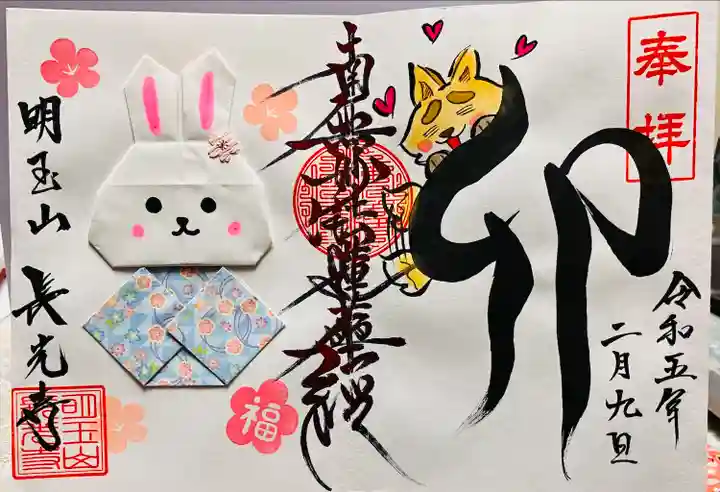 奉拝
卯
令和五年
二月九日
南無妙法蓮華経
福
明玉山 長光寺
明玉山
長光寺